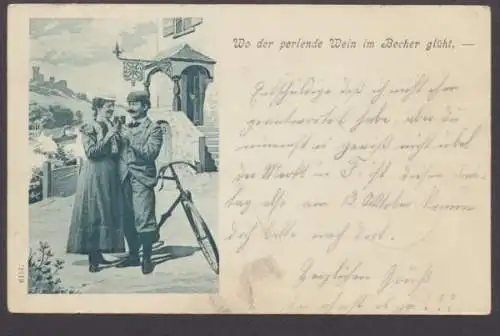 Wo der perlende Wein im Becher glüht. —
Entschuldige daß ich nicht eher
geantwortet habe, aber du
nimmst es gewiß nicht übel
der Markt in F. ist diesen Sonn-
tag also am 13 Oktober. komme
doch bitte nach dort.
Herzlichen Gruß